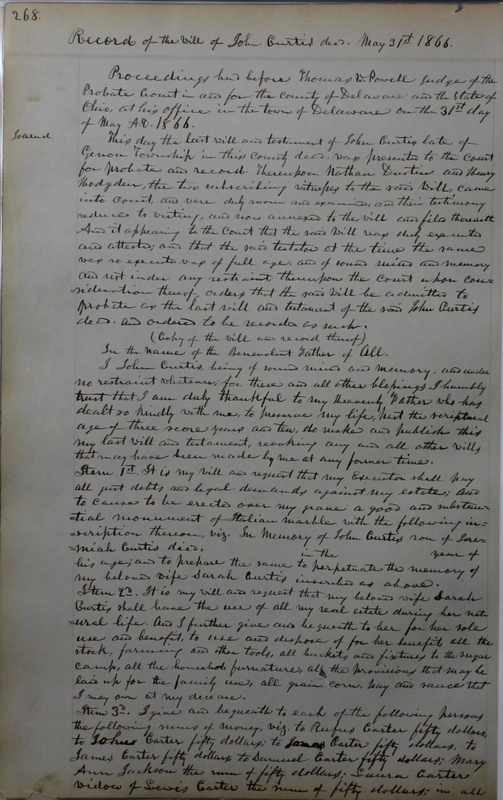 268.
Record of the Will of John Curtis decd. May 31st 1866.
Proceedings had before Thomas W. Powell Judge of the
Probate Court in and for the County of Delaware and the State of
Ohio at his office in the town of Delaware on the 31st day
of May A.D. 1866.
Journal
This day the last will and testament of John Curtis late of
Genoa Township in this County decd. was presented to the Court
for probate and record Thereupon Nathan Dustin and Henry
Hodgden, the two subscribing witnesses to the said Will, came
into Court, and were duly sworn and examined, and their testimony
reduced to writing, and now annexed to the will and filed therewith
And it appearing to the Court that the said Will was duly executed
and attested, and that the said testator at the time the same
was so executed was of full age, and of sound mind and memory
and not under any restraint thereupon the Court upon con-
sideration thereof orders that the said Will be admitted to
probate as the last will and testament of the said John Curtis
decd. and ordered to be recorded as such.
(Copy of the will and record thereof)
In the name of the Benevolent Father of All.
I John Curtis, being of sound mind and memory, and under
no restraint whatever; for these and all other blessings I humbly
trust that I am duly thankful to my Heavenly Father who has
dealt so kindly with me, to preserve my life, past the scriptural
age of three score years and ten, do make and publish this
my last will and testament, revoking any and all other Wills
that may have been made by me at any former time.
Item 1st. It is my will and request that my Executor shall pay
all just debts and legal demands against my estate; And
to cause to be erected over my grave a good and substan-
tial monument of Italian marble with the following in-
=scription thereon, viz. In Memory of John Curtis son of Jere-
=miah Curtis decd. in the year of
his age; and to prepare the same to perpetuate the memory of
my beloved wife Sarah Curtis inscribed as above.
Item 2nd. It is my will and request that my beloved wife Sarah
Curtis shall have the use of all my real estate during her nat-
=ural life. And I further give and bequeath to her for her sole
use and benefit, to use and dispose of for her benefit, all the
stock, farming and other tools, all buckets and fixtures to the sugar
camp, all the household furnature, all the provisions that may be
laid up for the family use, all grain corn, hay and sauce that
I may own at my decease.
Item 3rd. I give and bequeath to each of the following persons
the following sums of money, viz. to Rufus Carter fifty dollars,
to Carter fifty dollars; to Carter fifty dollars, to
James Carter fifty dollars to Samuel Carter fifty dollars; Mary
Ann Jackson the sum of fifty dollars; Laura Carter
widow of Lewis Carter the sum of fifty dollars; in all